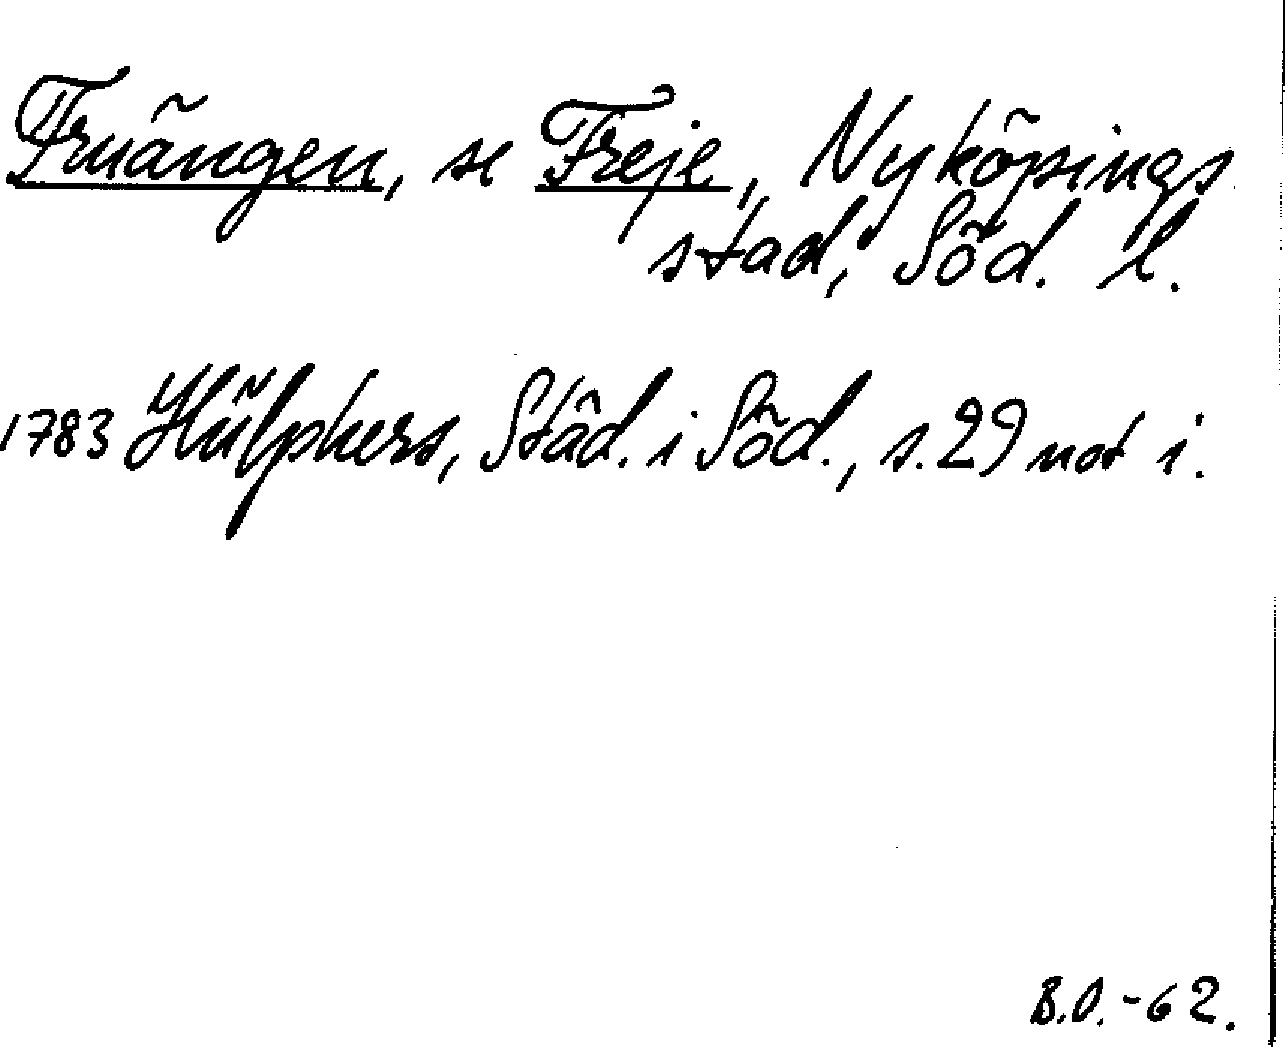 Fruängen, se Freje, Nyköpings
stad, Söd. l.
1783 Hülphers, Städ. i Söd., s. 29 not i.
B.O.-62.